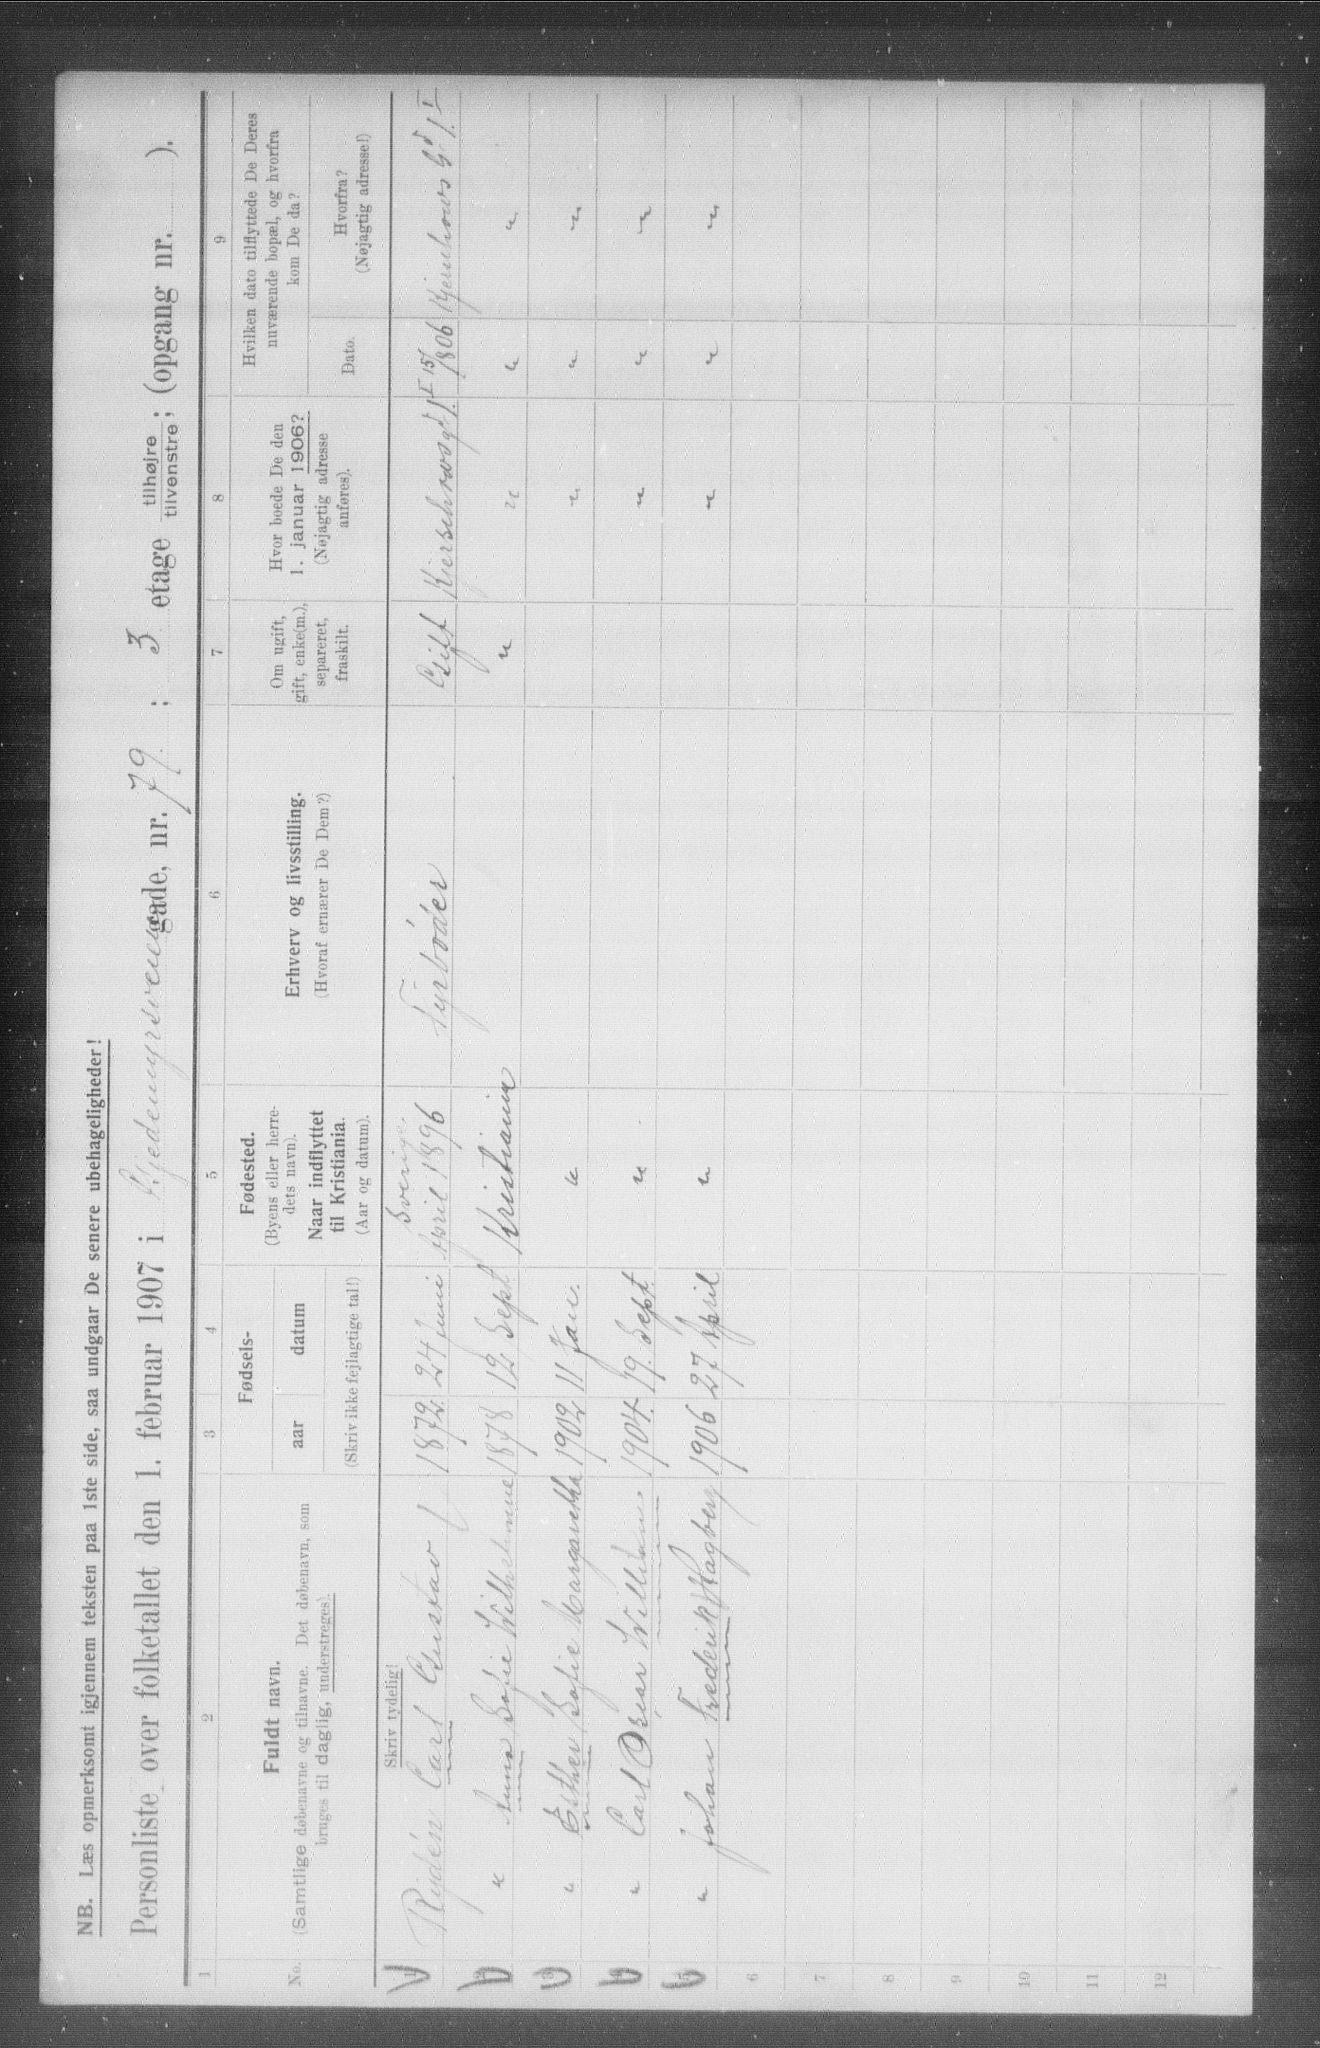 NB. Læs opmerksomt igjennem teksten paa 1ste side, saa undgaar De senere ubehageligheder!
Personliste over folketallet den 1. februar 1907 i Hjedemyrsveien gade, nr. 79. ; 3 etage tilhøjre tilvenstre; (opgang nr. ).
1 2 3 4 5 6 7 8 9
No.
Fuldt navn.
(Samtlige døbenavne og tilnavne. Det døbenavn, som
bruges til daglig, understreges).
Fødsels-
aar datum
(Skriv ikke fejlagtige tal!)
Fødested.
(Byens eller herre-
dets navn).
Naar indflyttet
til Kristiania.
(Aar og datum).
Erhverv og livsstilling.
(Hvoraf ernærer De Dem?)
Om ugift,
gift, enke(m.),
separeret,
fraskilt.
Hvor boede De den
1. januar 1906?
(Nøjagtig adresse
anføres).
Hvilken dato tilflyttede De Deres
nuværende bopæl, og hvorfra
kom De da?
Dato.
Hvorfra?
(Nøjagtig adresse!)
Skriv tydelig!
1 Rydén Carl Gustav 1872 24 Juni Sverige April 1896 Fyrbøder Gift Kjerschowsgd 1. I 15/1 806 Kjerschows Gd 1. I
2 " Anna Sofie Wilhelmine 1878 12 Sept. Kristiania " " " "
3 " Esther Sofie Margarethe 1902 11 Jan. " " " "
4 " Carl Oskar William 1904. 19. Sept. " " " "
5 " Johan Frederik Hagberg 1906 27 April " " " "
6
7
8
9
10
11
12